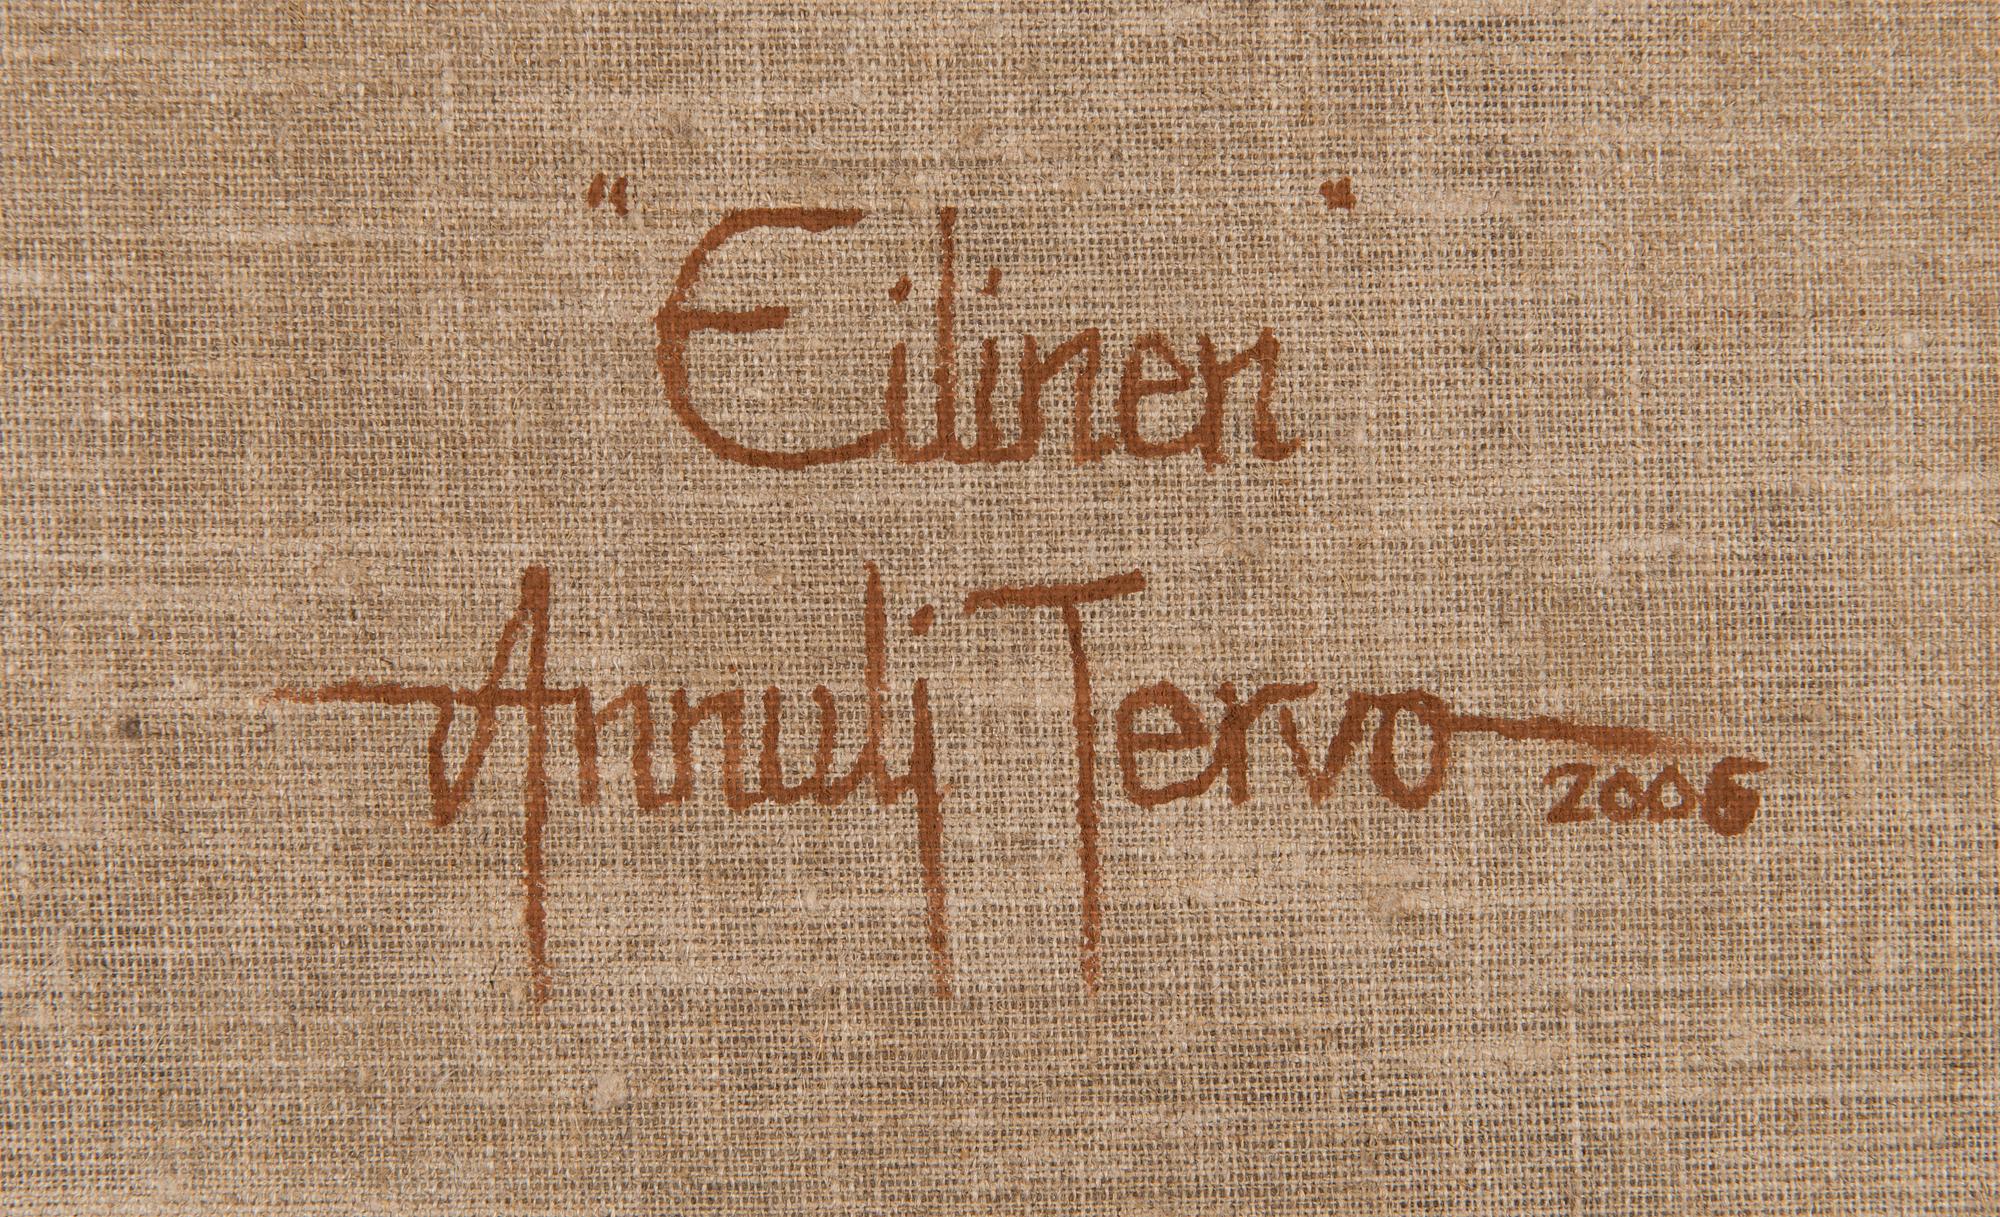 "Eilinen"
Annulj Tervo 2006